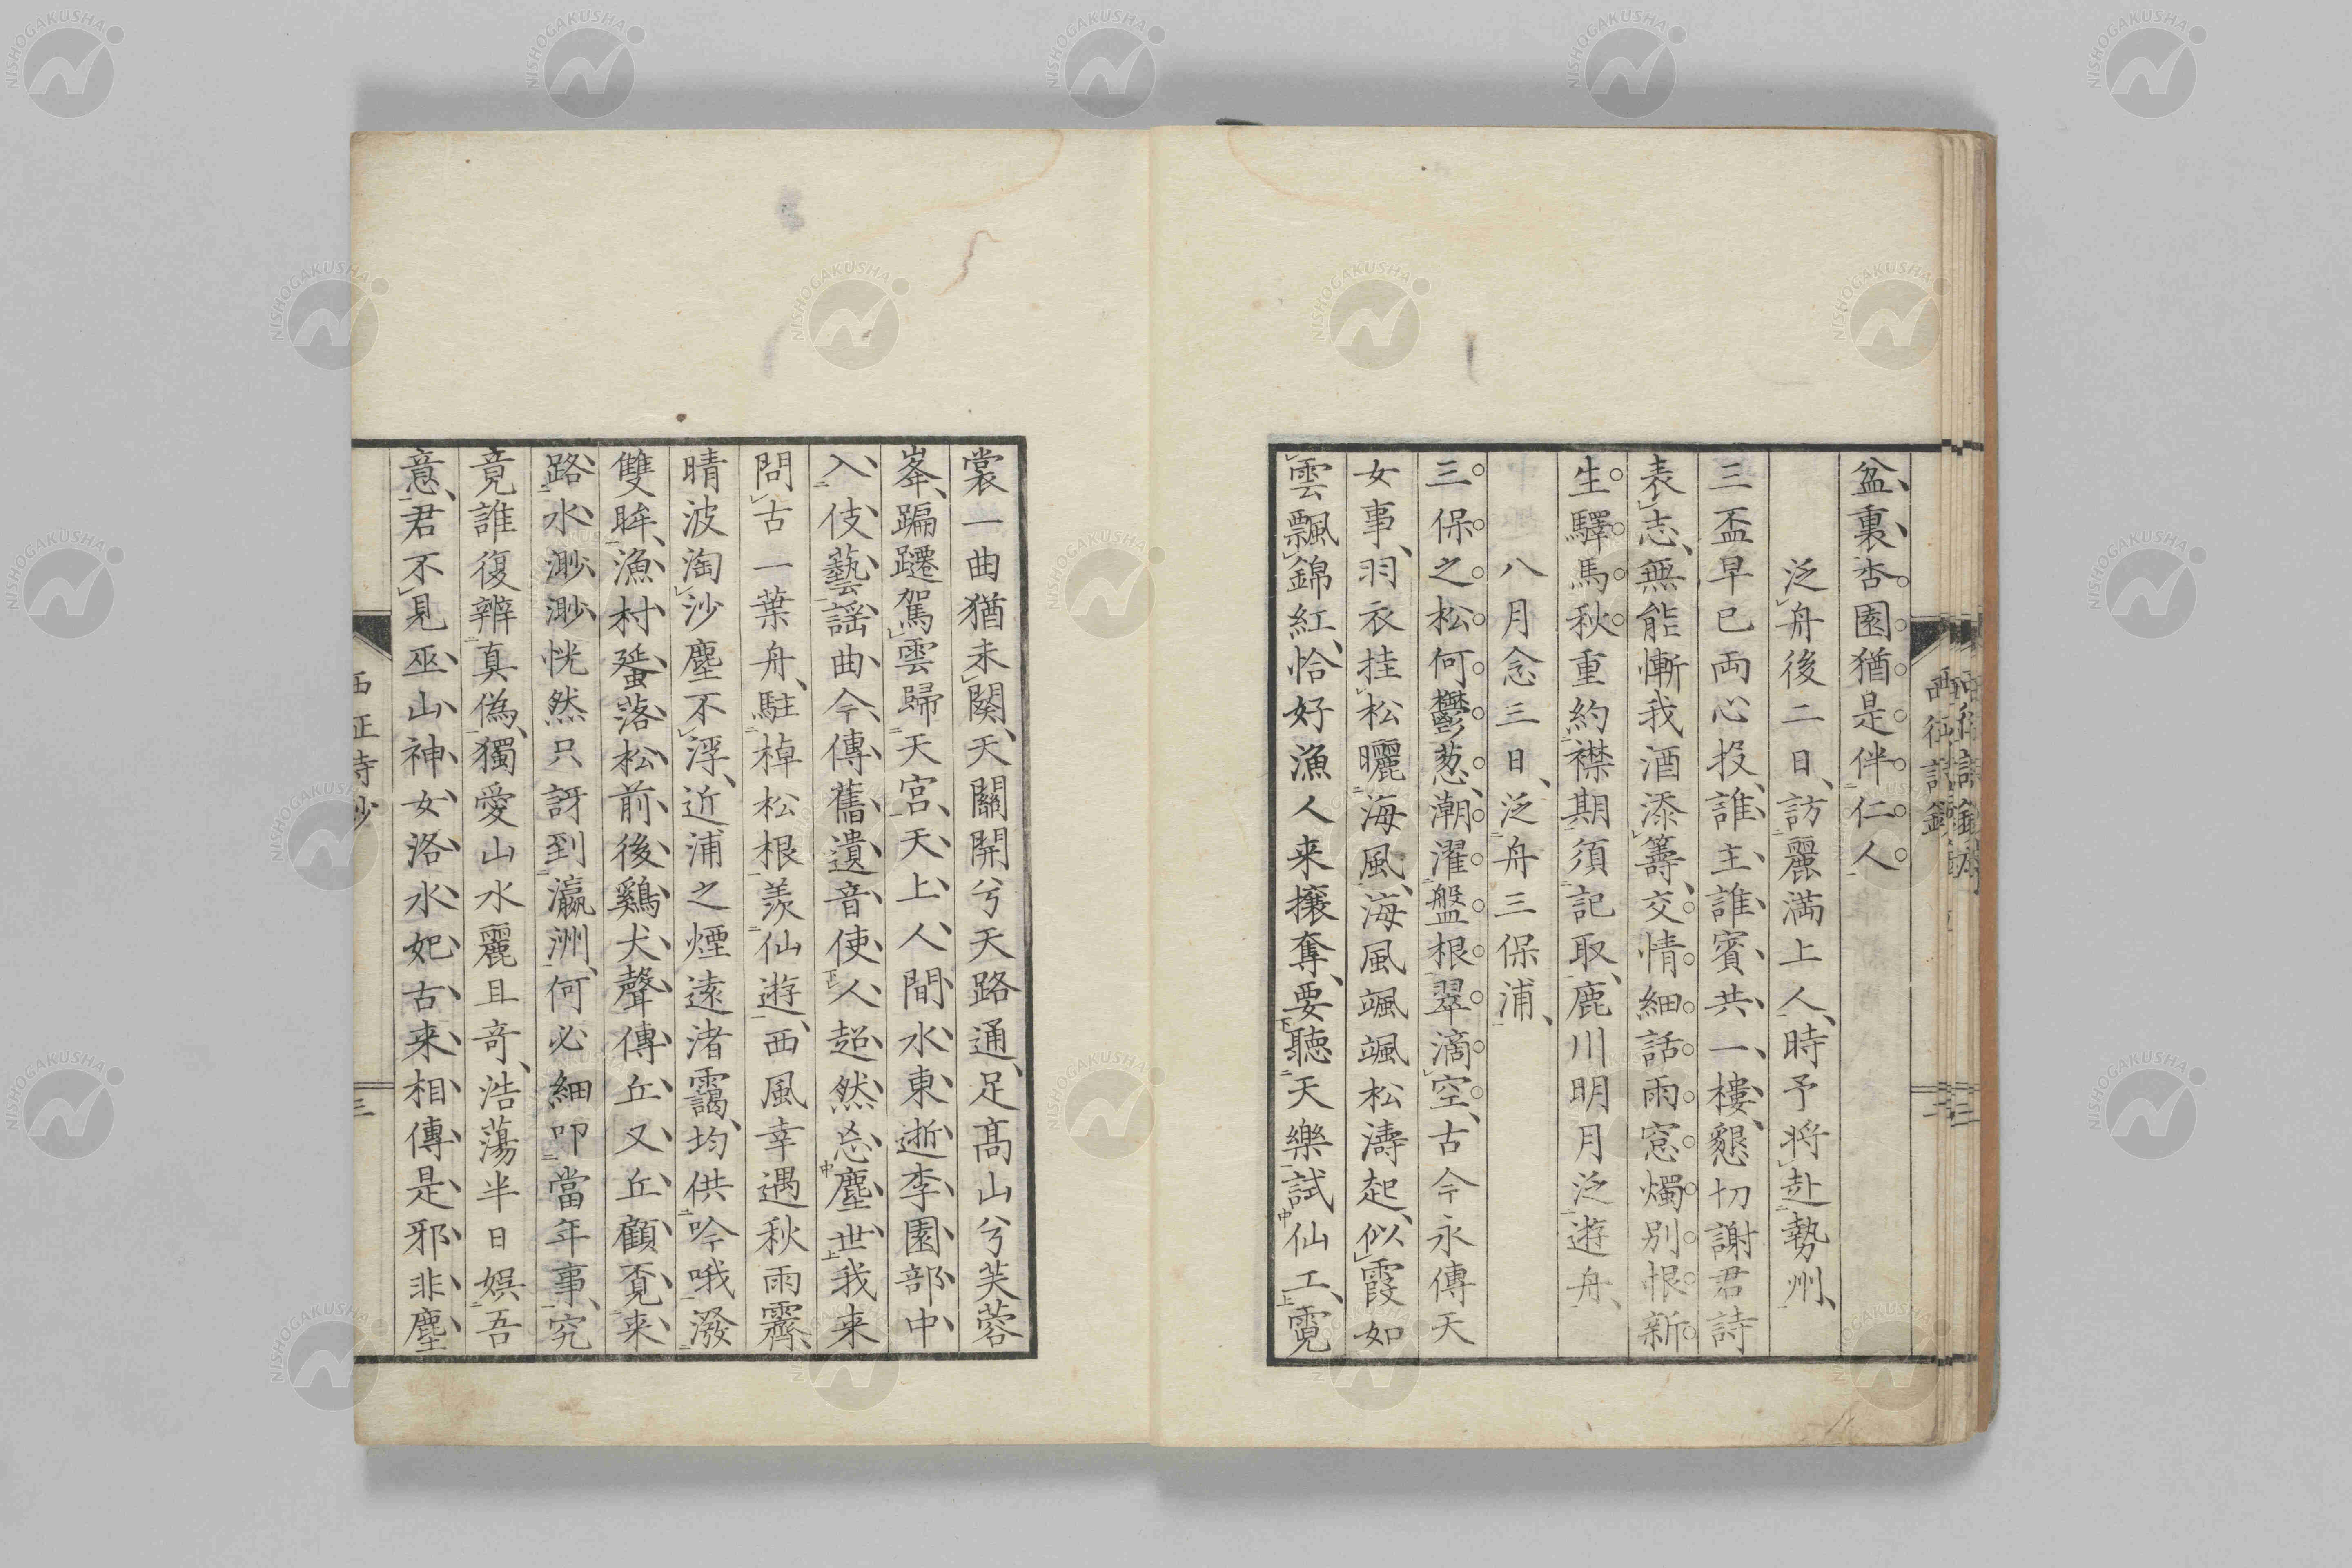 盆裏杏園猶是伴仁人
泛舟後二日訪麗満上人時予将赴勢州
三盃早已両心投誰主誰賓共一樓懇切謝君詩
表志無能慚我酒添籌交情細話雨窓燭別恨新
生驛馬秋重約襟期須記取鹿川明月泛遊舟
八月念三日泛舟三保浦
三保之松何鬱葱潮濯盤根翠滴空古今永傳天
女事羽衣挂松曬海風海風颯颯松濤起似霞如
雲飄錦紅恰好漁人来攘奪要聽天樂試仙工霓
裳一曲猶未闋天關開兮天路通足髙山兮芙蓉
峯蹁躚駕雲歸天宮天上人間水東逝李園部中
入伎藝謡曲今傳舊遺音使人超然忘塵世我来
問古一葉舟駐棹松根羨仙遊西風幸遇秋雨霽
晴波淘沙塵不浮近浦之煙遠渚靄均供吟哦潑
雙眸漁村蜑落松前後鷄犬聲傳丘又丘顧覔来
路水渺渺恍然只訝到瀛洲何必細叩當年事究
竟誰復辨真偽獨愛山水麗且竒浩蕩半日娯吾
意君不見巫山神女洛水妃古来相傳是邪非塵
三
NISHOGAKUSHA